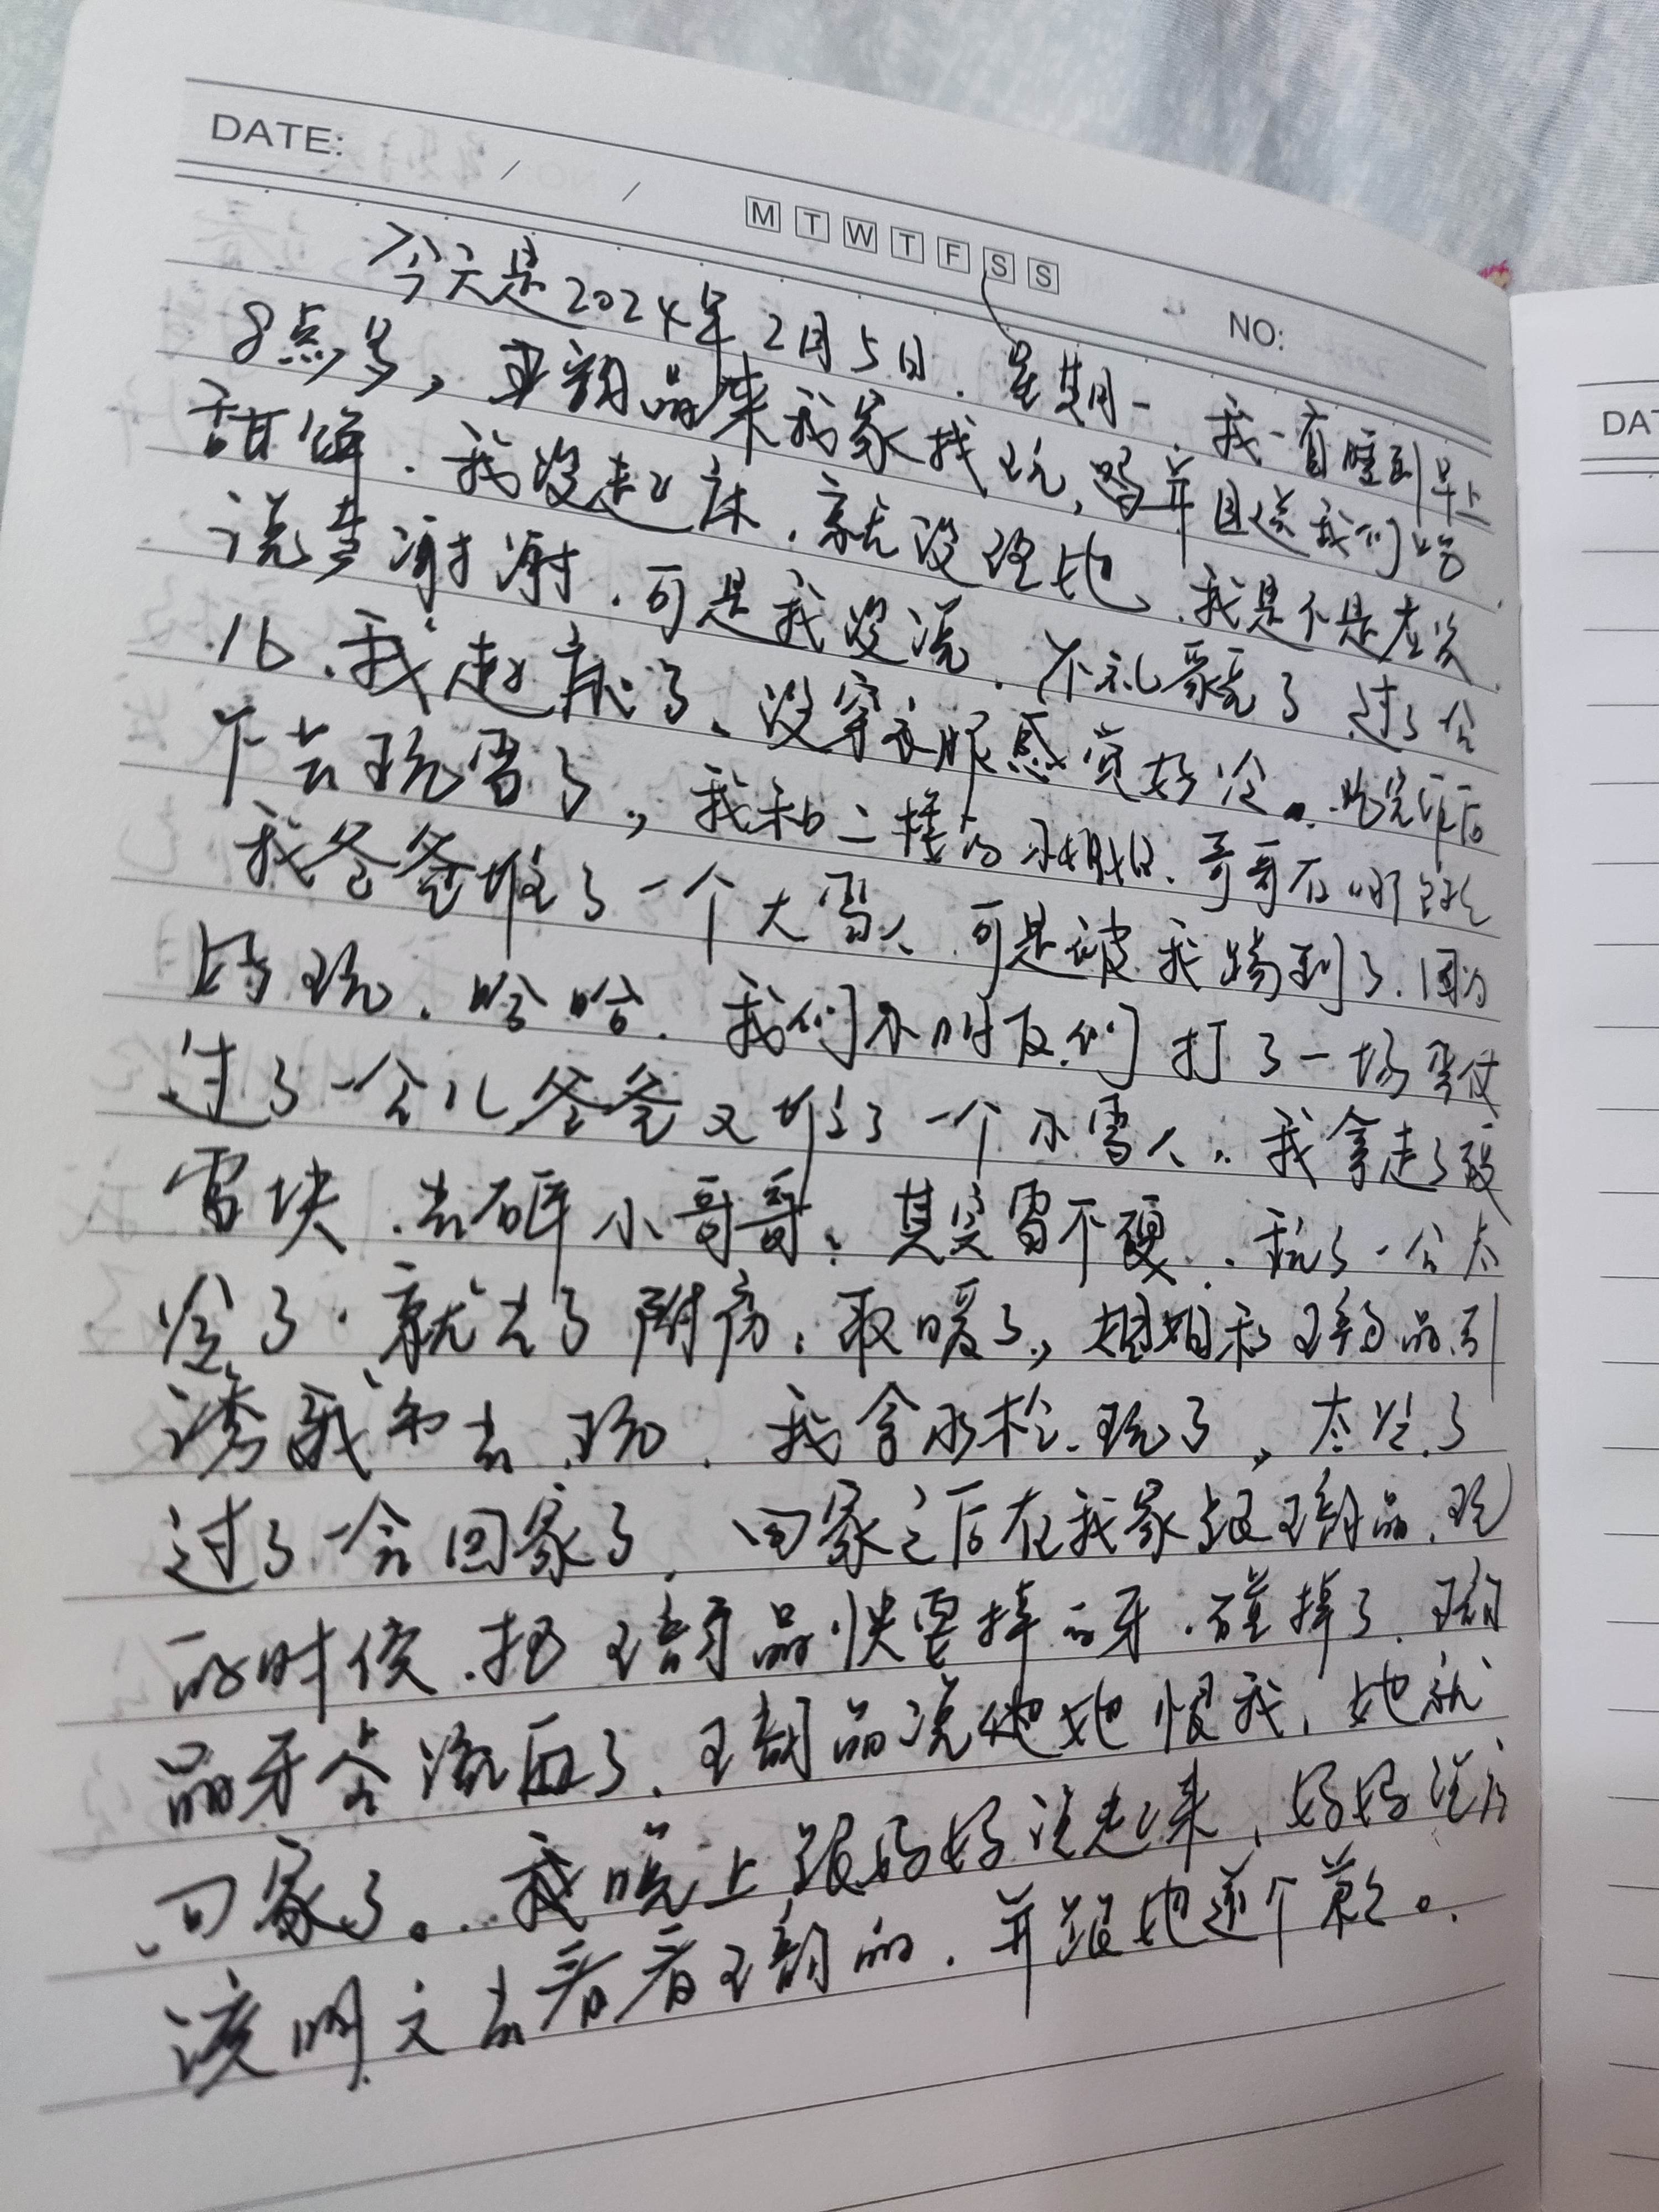 DATE: / /
M T W T F S S
NO:
今天是2024年2月5日.星期一.我一直睡到早上
8点多,王韵品来我家找玩,并且送我们吃
甜饼.我没起床.就没理她.我是不是应该
说声谢谢.可是我没说.不礼貌了 过了会
儿.我起床了.没穿衣服感觉好冷.吃完饭后
下去玩雪了,我和二楼的小姐姐.哥哥在那
我爸爸堆了一个大雪人 可是被我踢到了.因为
好玩.哈哈.我们小朋友们打了一场雪仗
过了一会儿爸爸又堆了一个小雪人.我拿走了
雪块.去砸小哥哥.其实雪不硬..玩了一会太
冷了.就去了附房.取暖了,姐姐和王韵品引
诱我出去玩.我拿水枪玩了,太冷了
过了一会回家了.回家之后在我家跟王韵品.玩
的时侯.把王韵品快要掉的牙.碰掉了.王韵
品牙会流血了.王韵品说她恨我,她就
回家了。..我晚上跟妈妈说起来,妈妈说应
该明天去看看王韵品.并跟她道个歉。
DAT